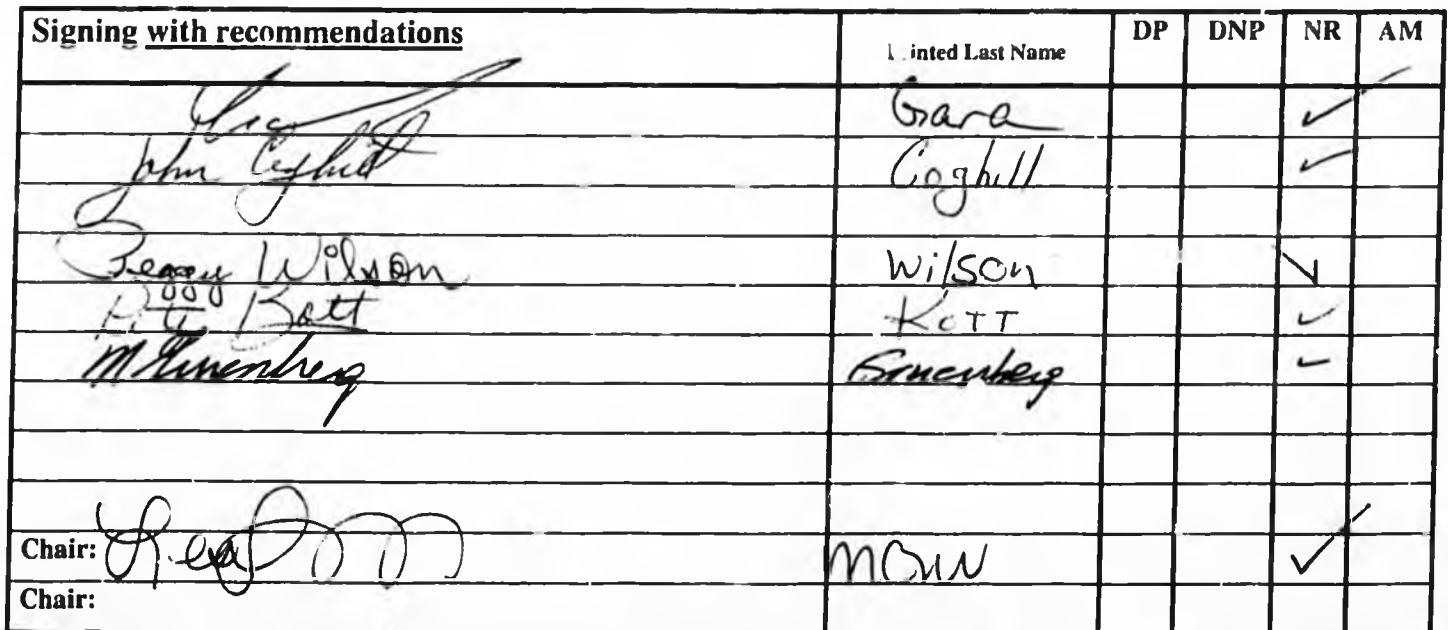 Signing with recommendations inted Last Name DP DNP NR AM
Gara ✓
John Coghill Coghill ✓
Peggy Wilson Wilson ✓
Pete Kott Kott ✓
M Gruenberg Gruenberg ✓
Chair: ✓
Chair: